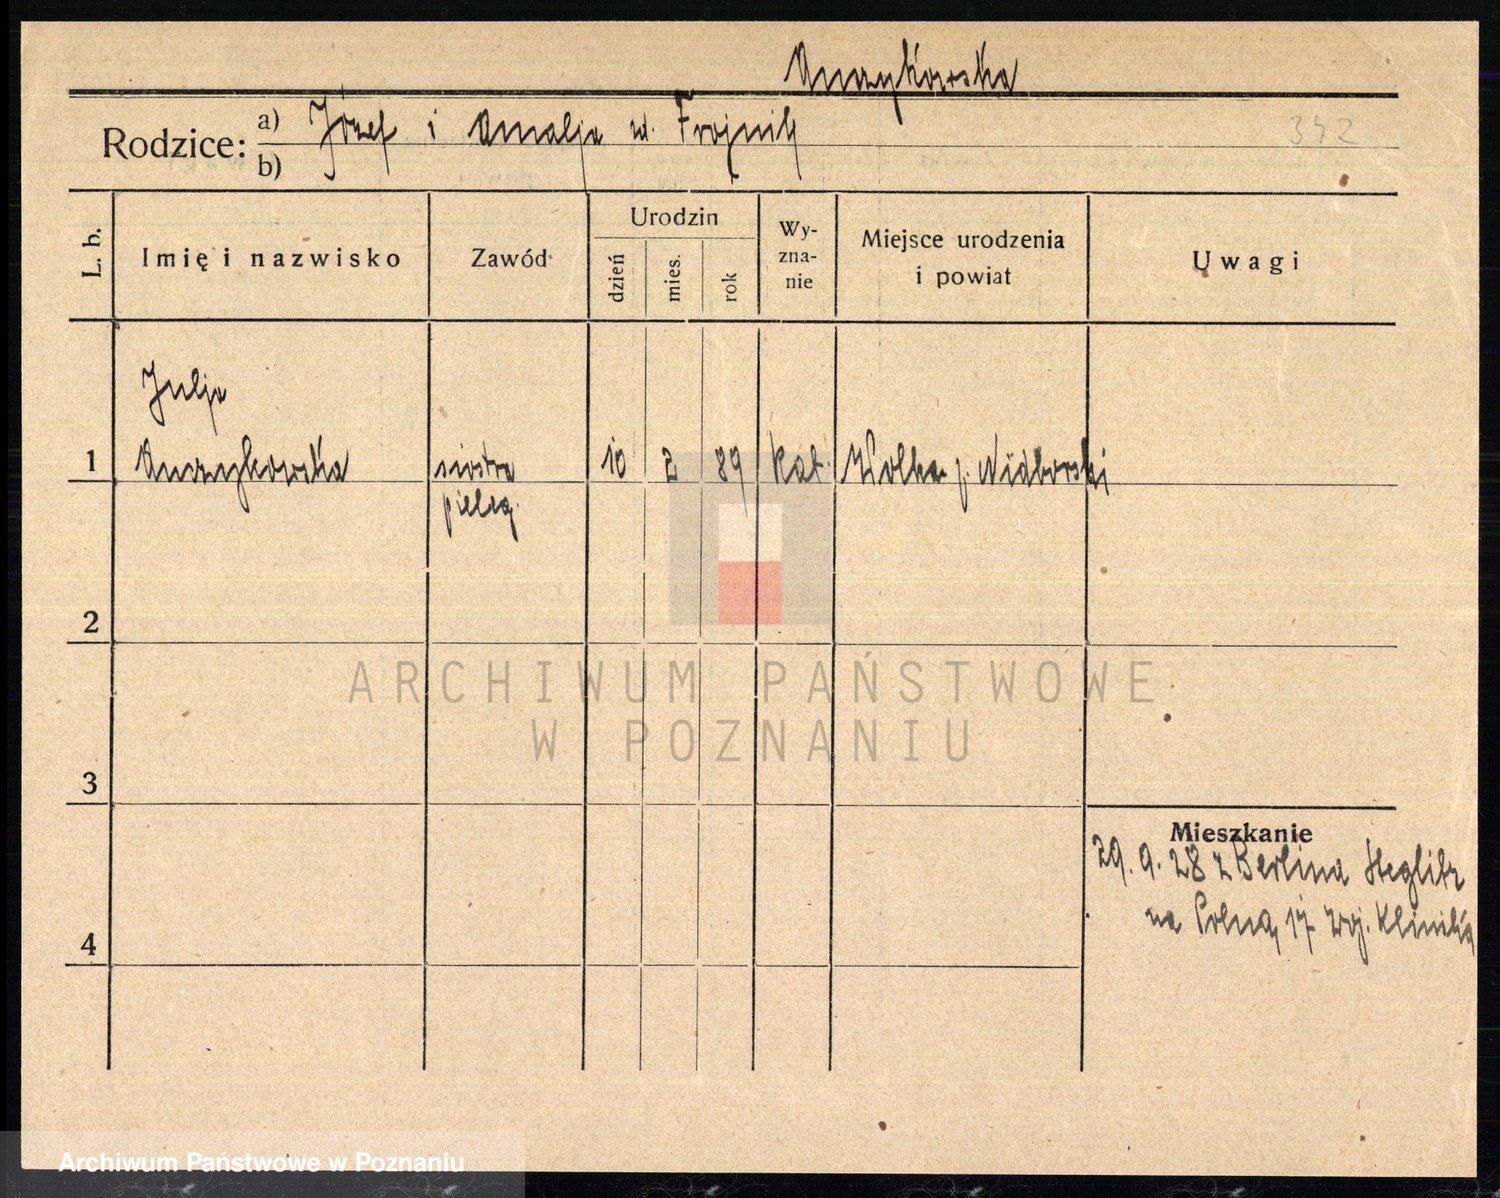 Anczykowska
Rodzice: a) Józef i Amalja ur. Trojnik
b)
342
L. b.
Imię i nazwisko
Zawód
Urodzin
dzień
mies.
rok
Wy-
zna-
nie
Miejsce urodzenia
i powiat
Uwagi
Julja
1 siostra 10 2 89 kat. Wolka p. Nidborski
pielęg.
2
3
4
Mieszkanie
29. 9. 28 z Berlina Steglitz
na Polną 17 woj. Klinika
ARCHIWUM PAŃSTWOWE
W POZNANIU
Archiwum Państwowe w Poznaniu